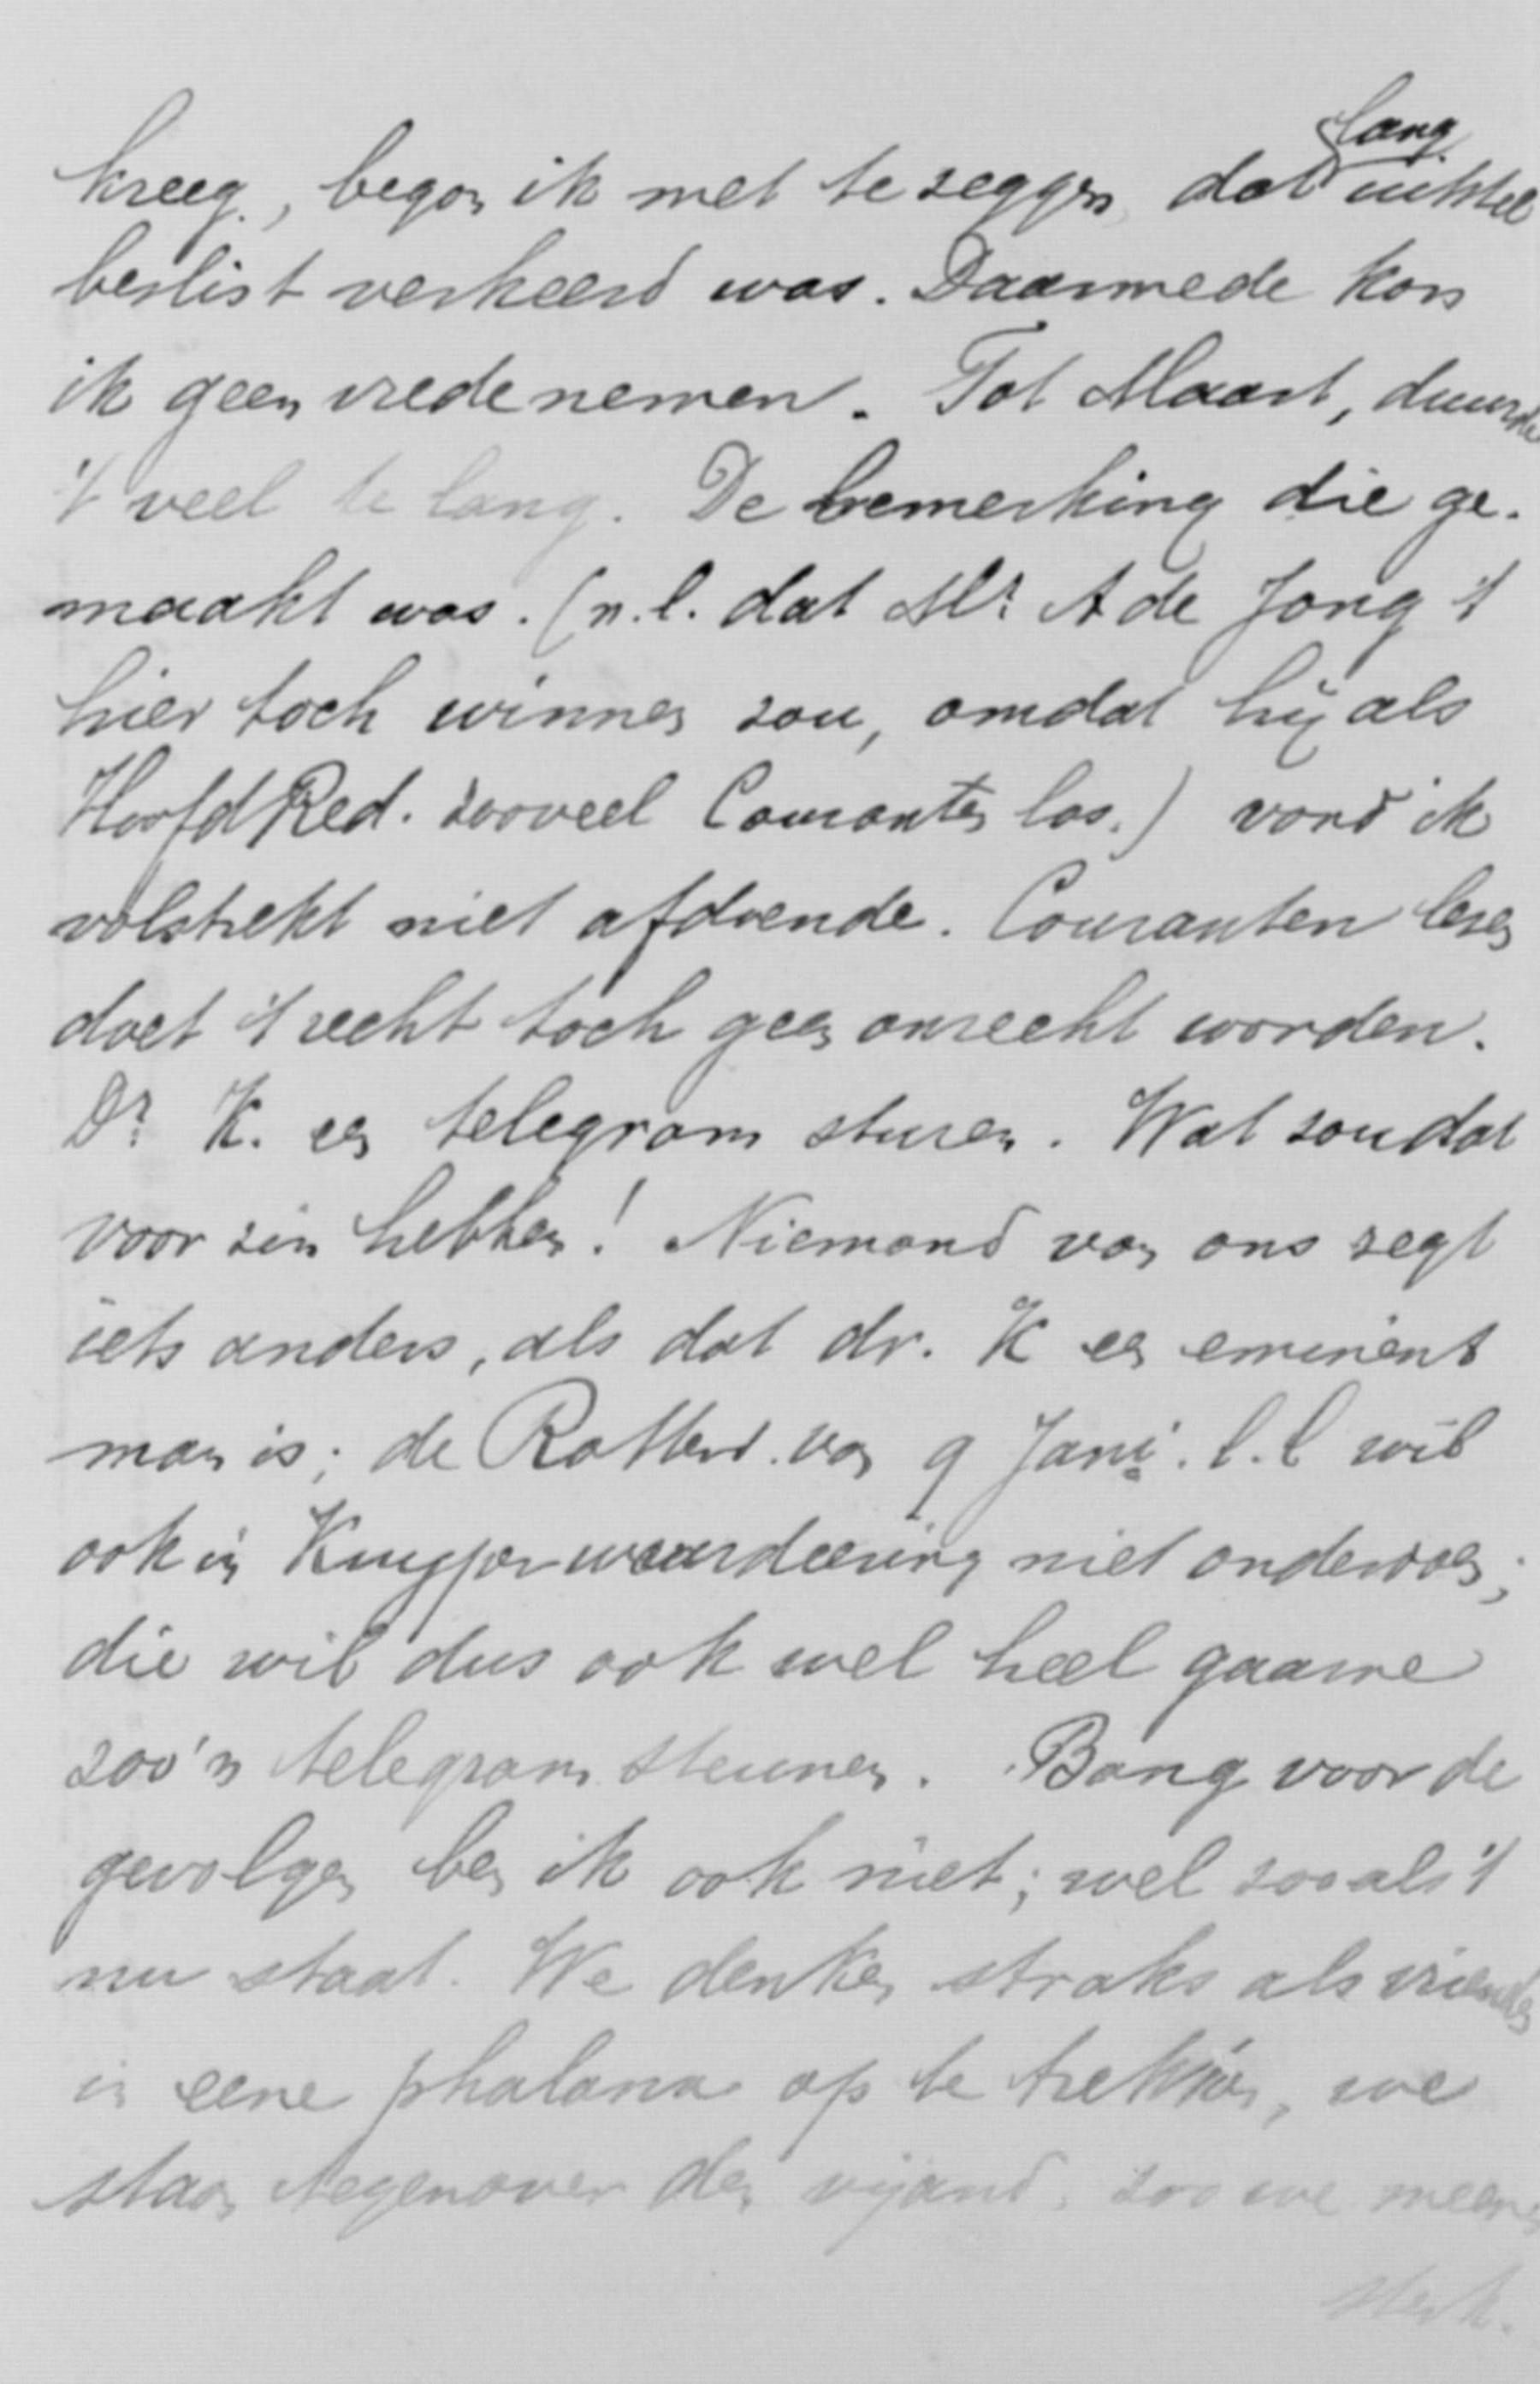 kreeg, began ik met te zeggen dat lang uitstel
beslist verkeerd was. Daarmede kon
ik geen vrede nemen. Tot Maart, duurde
't veel te lang. De bemerking die ge-
maakt was. (n.l. dat Mr A de Jong 't
hier toch winnen zou, omdat hij als
HoofdRed. zooveel Couranten las.) vond ik
volstrekt niet afdoende. Couranten lezen
doet 't recht toch geen onrecht worden.
Dr K. een telegram sturen. Wat zou dat
voor zin hebben! Niemand van ons zegt
iets anders, als dat dr. K een eminent
man is; de Rotterd. van 9 Jani. l.l wil
ook in Kuyper waardeering niet onderdoen;
die wil dus ook wel heel gaarne
zoo'n telegram steunen. Bang voor de
gevolgen ben ik ook niet; wel zooals 't
nu staat. We denken straks als vrienden
in eene phalanx op te trekken, we
staan tegenover den vijand, zoo we meenen
sterk.